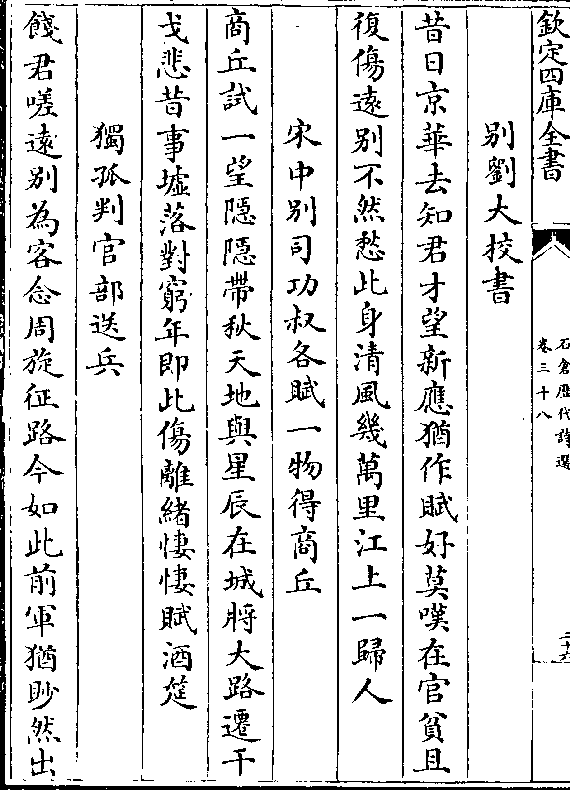 欽定四庫全書
石倉歴代詩選
卷三十八
二十六
别劉大校書
昔日京華去知君才望新應猶作賦好莫嘆在官貧且
復傷遠别不然愁此身清風幾萬里江上一歸人
宋中别司功叔各賦一物得商丘
商丘試一望隱隱帶秋天地與星辰在城將大路遷干
戈悲昔事墟落對窮年即此傷離緒悽悽賦酒筵
獨孤判官部送兵
餞君嗟遠别為客念周旋征路今如此前軍猶眇然出